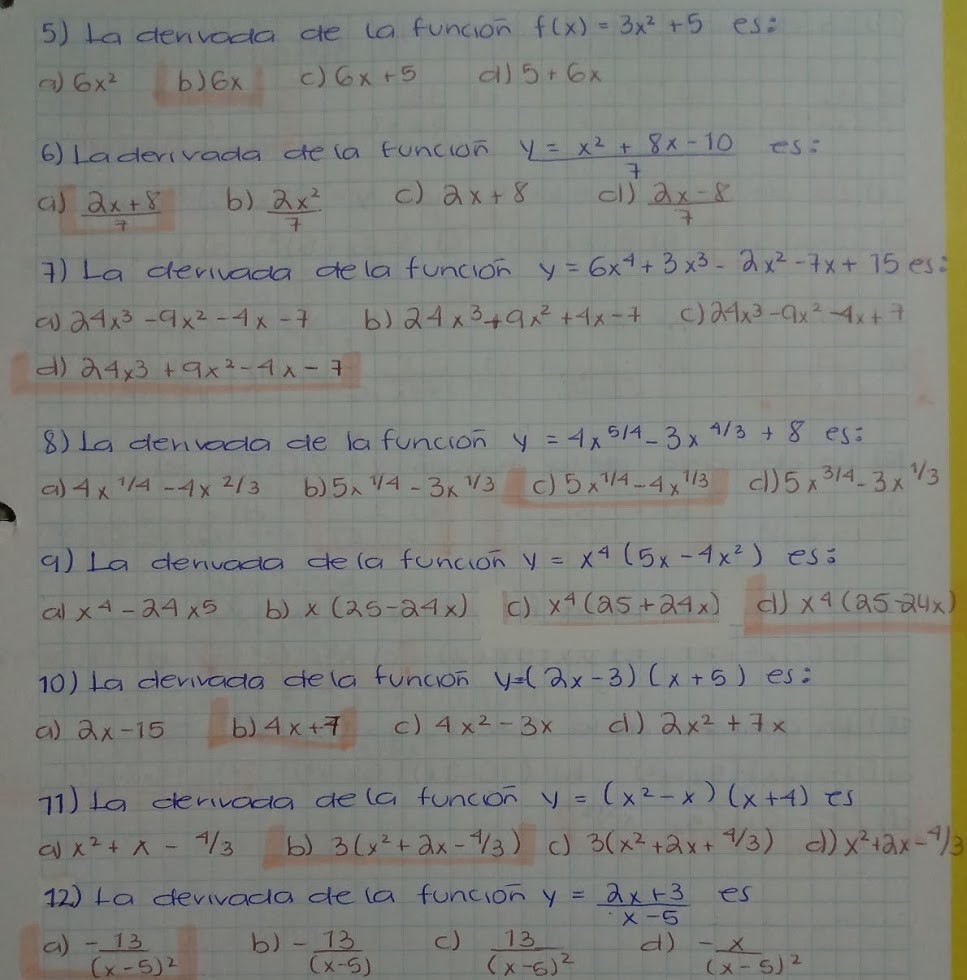 5) La derivada de la función f(x) = 3x² + 5 es:
a) 6x² b) 6x c) 6x + 5 d) 5 + 6x
6) La derivada de la función y = x² + 8x - 10 / 7 es:
a) 2x + 8 / 7 b) 2x² / 7 c) 2x + 8 d) 2x - 8 / 7
7) La derivada de la función y = 6x⁴ + 3x³ - 2x² - 7x + 15 es:
a) 24x³ - 9x² - 4x - 7 b) 24x³ + 9x² + 4x - 7 c) 24x³ - 9x² - 4x + 7
d) 24x3 + 9x² - 4x - 7
8) La derivada de la función y = 4x^5/4 - 3x^4/3 + 8 es:
a) 4x^1/4 - 4x^2/3 b) 5x^1/4 - 3x^1/3 c) 5x^1/4 - 4x^1/3 d) 5x^3/4 - 3x^1/3
9) La derivada de la función y = x⁴ (5x - 4x²) es:
a) x⁴ - 24x⁵ b) x (25 - 24x) c) x⁴ (25 + 24x) d) x⁴ (25 - 24x)
10) La derivada de la función y = (2x - 3) (x + 5) es:
a) 2x - 15 b) 4x + 7 c) 4x² - 3x d) 2x² + 7x
11) La derivada de la función y = (x² - x) (x + 4) es
a) x² + x - 4/3 b) 3(x² + 2x - 4/3) c) 3(x² + 2x + 4/3) d) x² + 2x - 4/3
12) La derivada de la función y = 2x + 3 / x - 5 es
a) - 13 / (x - 5)² b) - 13 / (x - 5) c) 13 / (x - 5)² d) - x / (x - 5)²